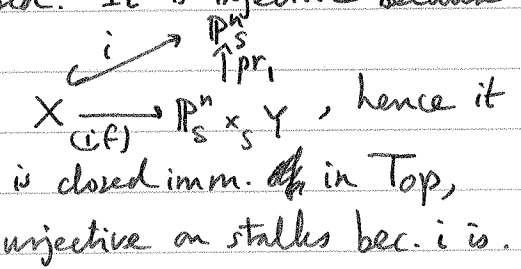 It is injective because
i ℙⁿ_S
↑ pr₁
X ⟶ ℙⁿ_S ×_S Y , hence it
(i,f)
is closed imm. in Top,
surjective on stalks bec. i is.